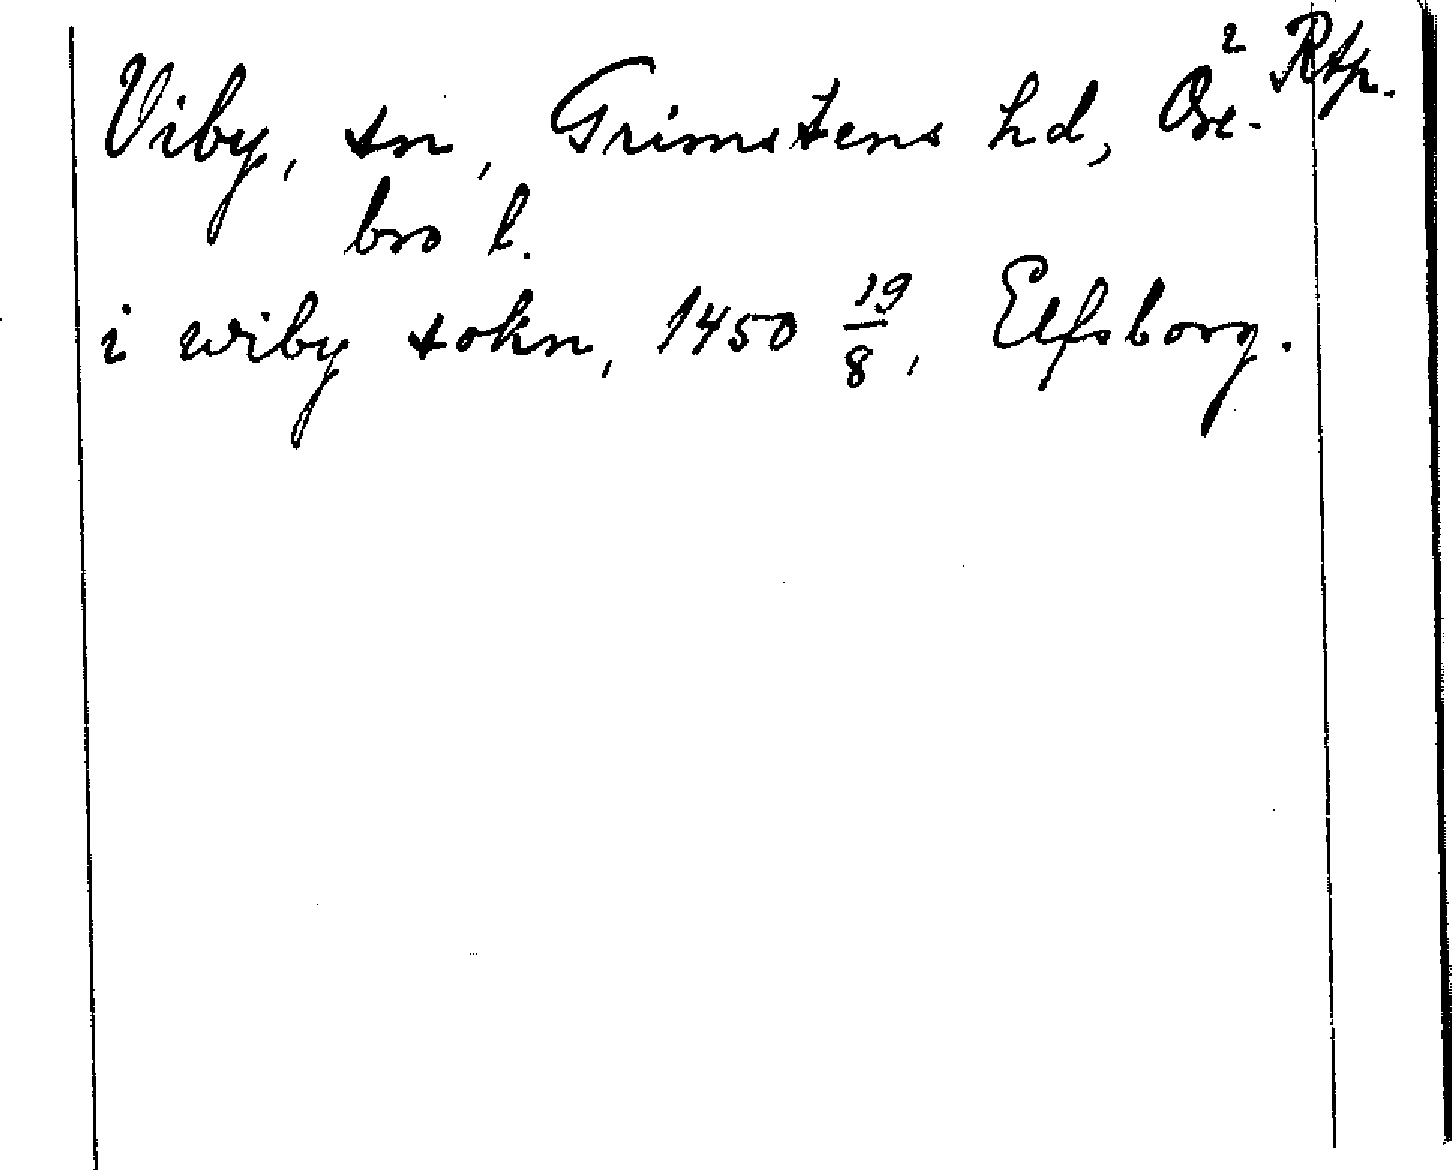 Viby, sn, Grimstens hd, Öre- ² Rtp.
bro l.
i wiby sokn, 1450 19/8, Elfsborg.